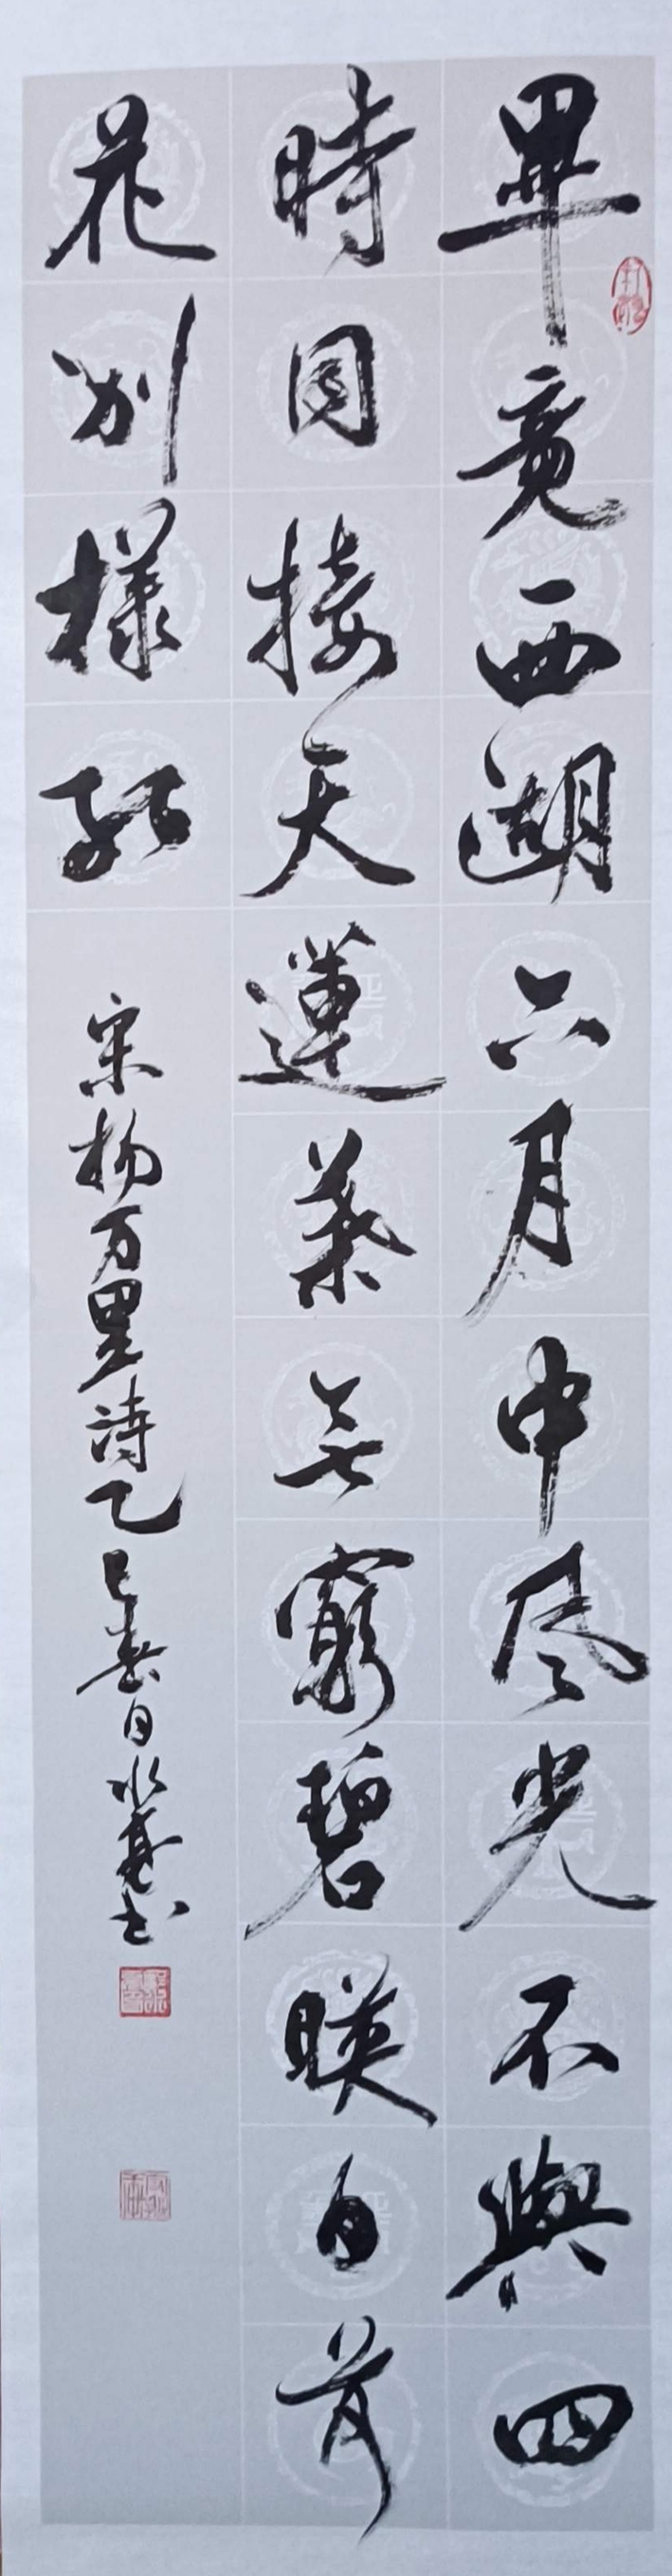 畢竟西湖六月中風光不與四
時同接天蓮葉無窮碧暎日荷
花別樣紅
宋楊万里詩乙巳春日書